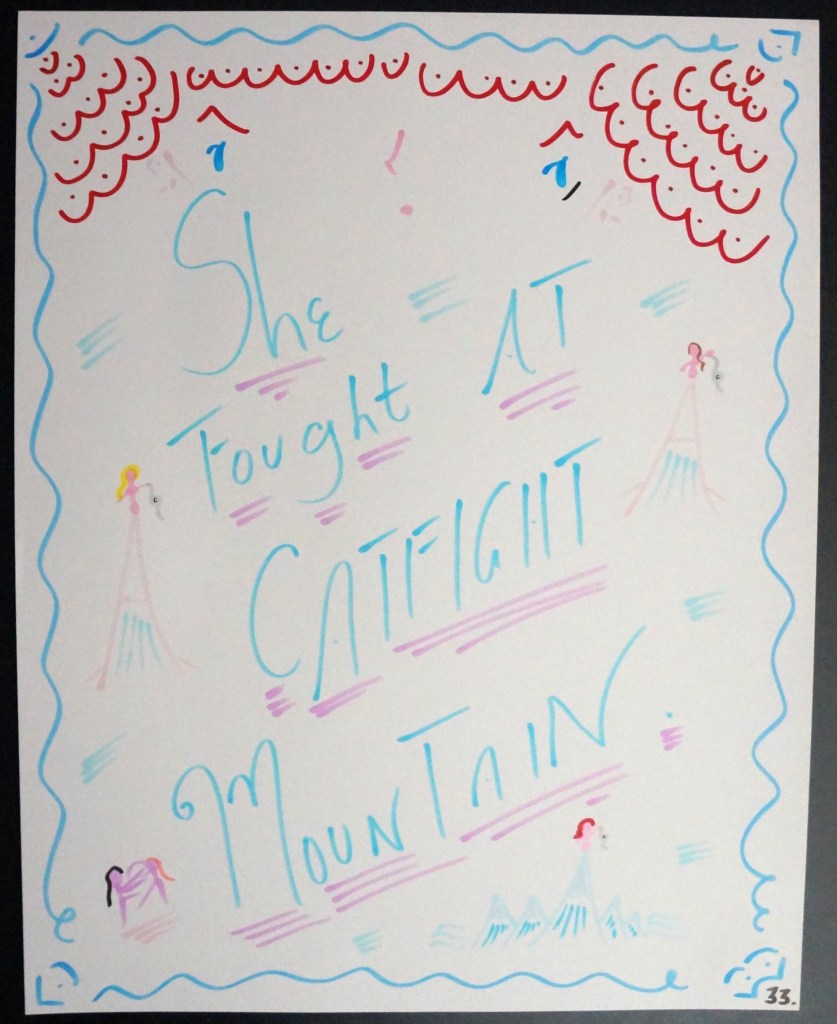 She
Fought AT
CATFIGHT
MOUNTAIN.
33.